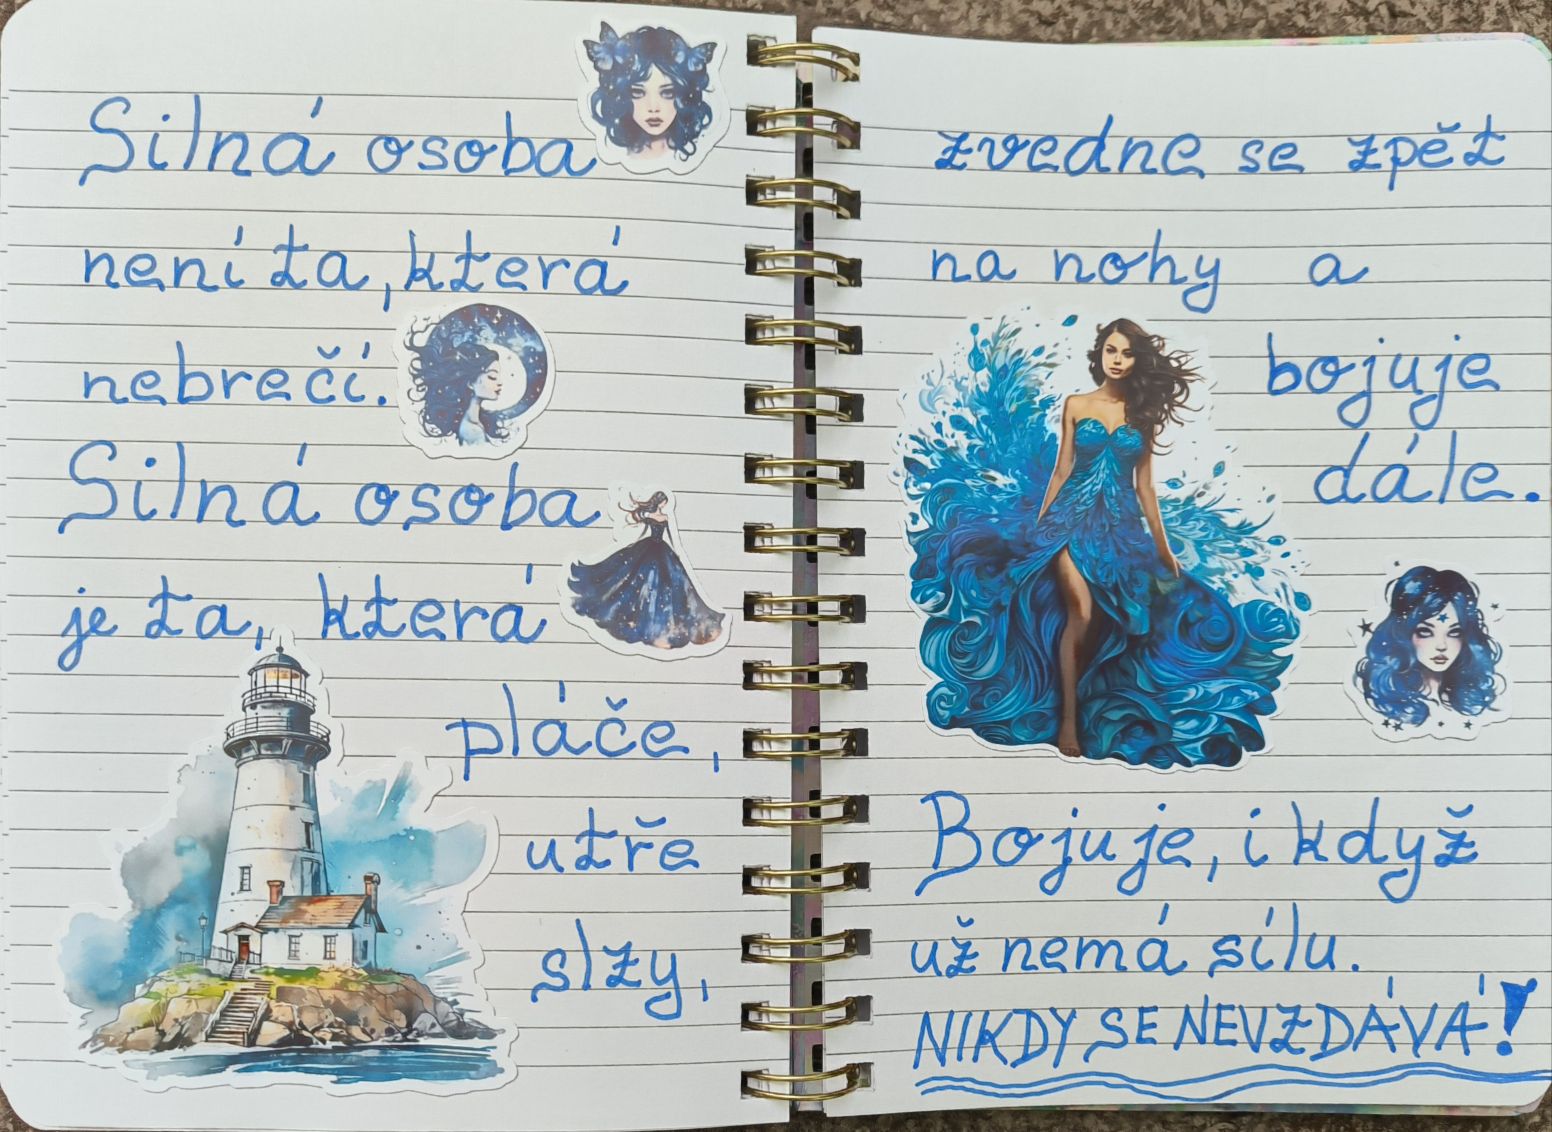 Silná osoba
není ta, která
nebrečí.
Silná osoba
je ta, která
pláče,
utře
slzy,
zvedne se zpět
na nohy a
bojuje
dále.
Bojuje, i když
už nemá sílu.
NIKDY SE NEVZDÁVÁ!